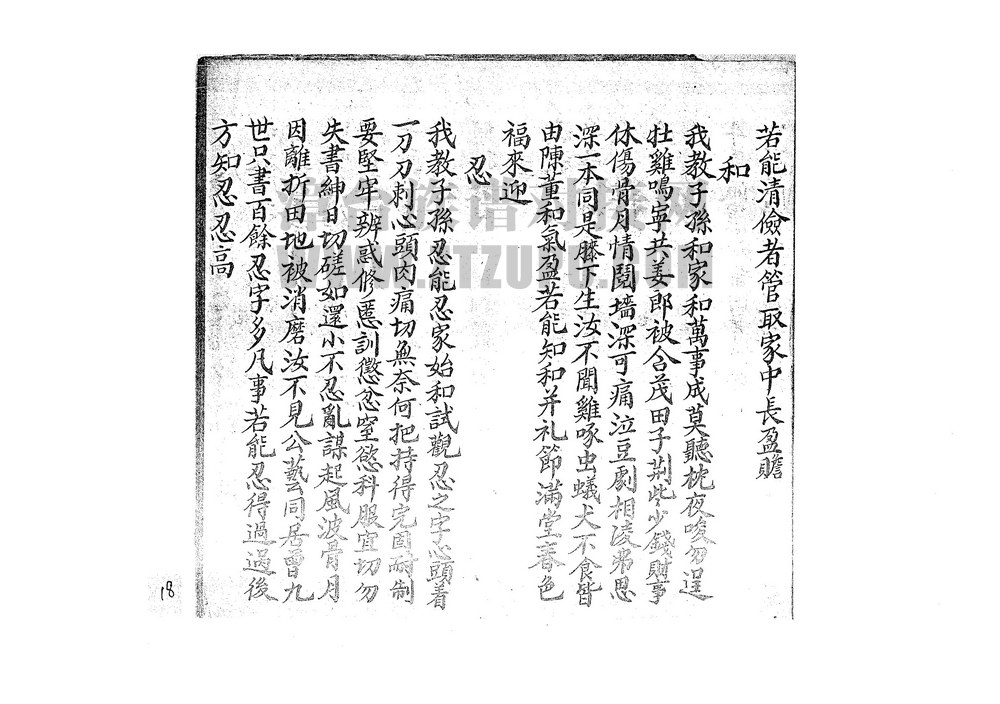 若能清儉者管取家中長盈贍
和
我教子孫和家和萬事成莫聽枕夜唆勿逞
牡雞鳴寧共姜郎被含茂田子荆些少錢財事
休傷骨月情鬩墻深可痛泣豆劇相淩弗思
深一本同是膝下生汝不聞雞啄虫蟻犬不食皆
由陳董和氣盈若能知和并礼節滿堂喜色
福來迎
忍
我教子孫忍能忍家始和試觀忍之字心頭着
一刀刀刺心頭肉痛切無奈何把持得完固耐制
要堅牢辨惑修慝訓懲忿窒慾科服宜切勿
失書紳日切磋如還小不忍亂謀起風波骨月
因離折田地被消磨汝不見公藝同居曾九
世只書百餘忍字多凡事若能忍得過過後
方知忍忍高
18
WWW.JTZUPU.COM